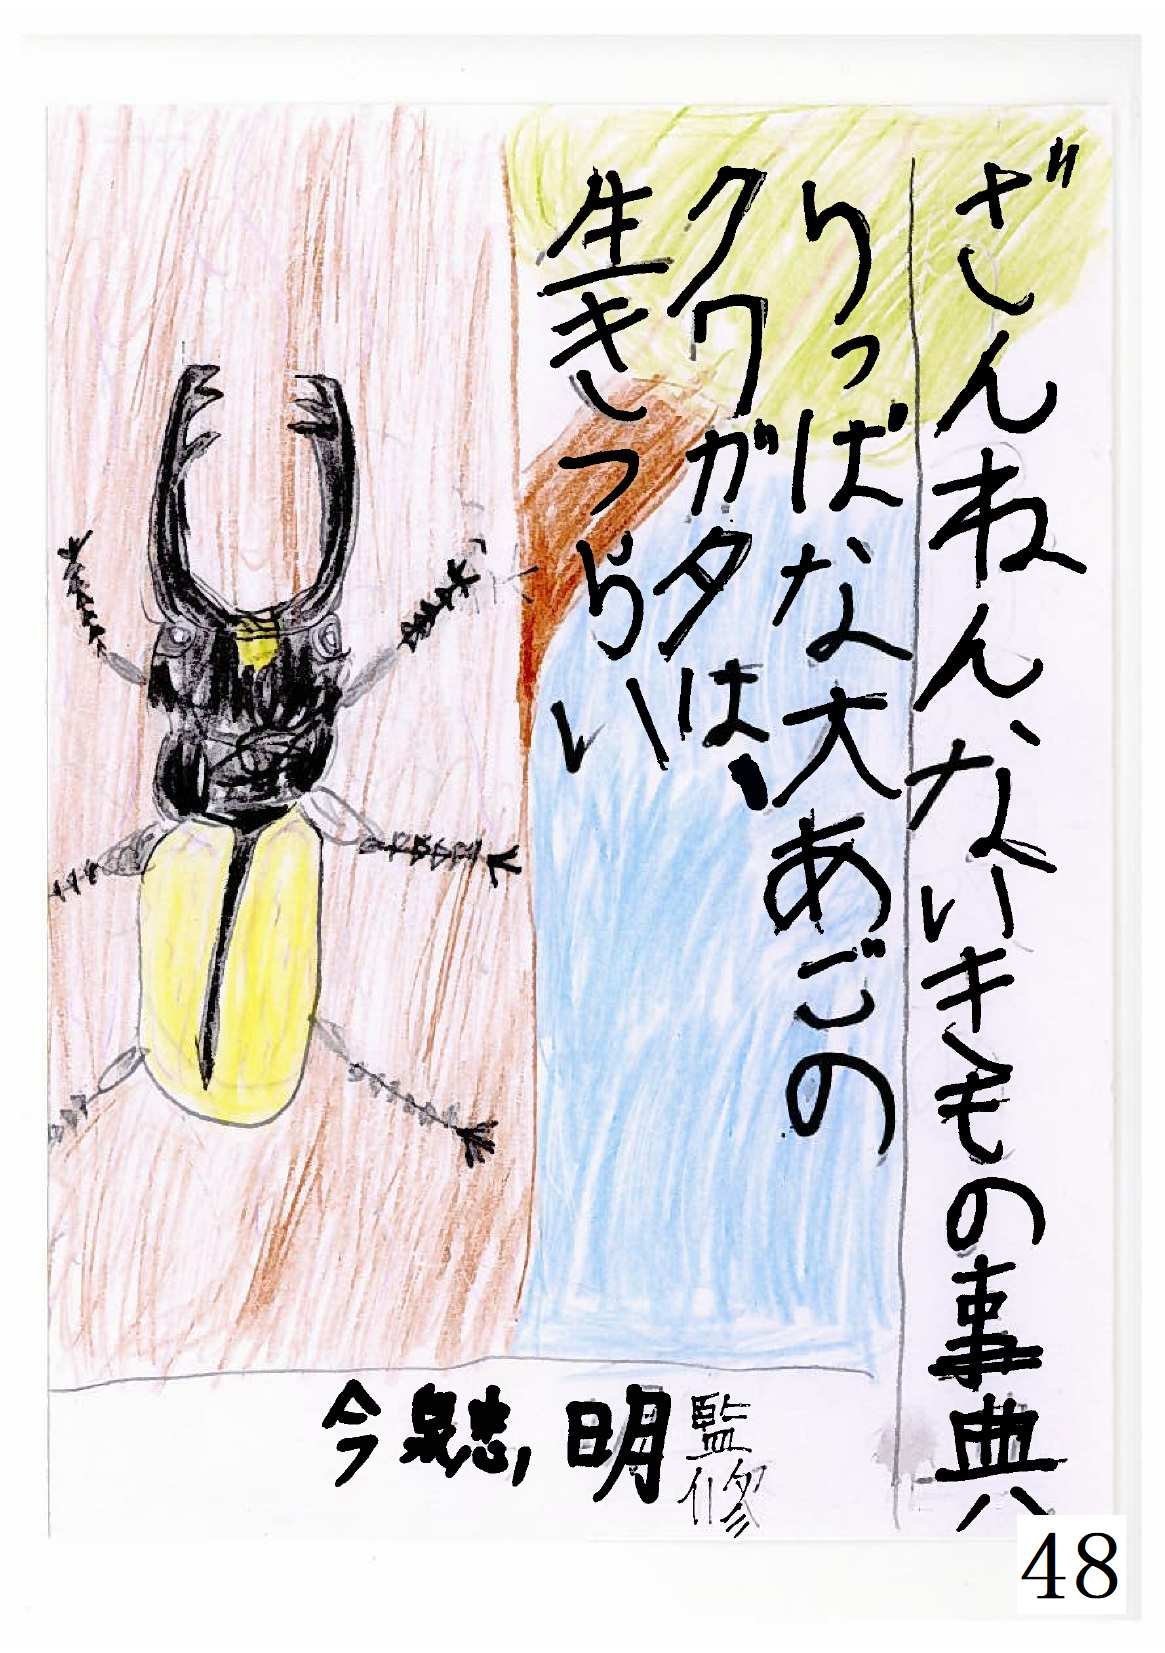 ざんねんないきもの事典
りっぱな大あごの
クワガタは、
生きづらい
今泉忠明 監修
48